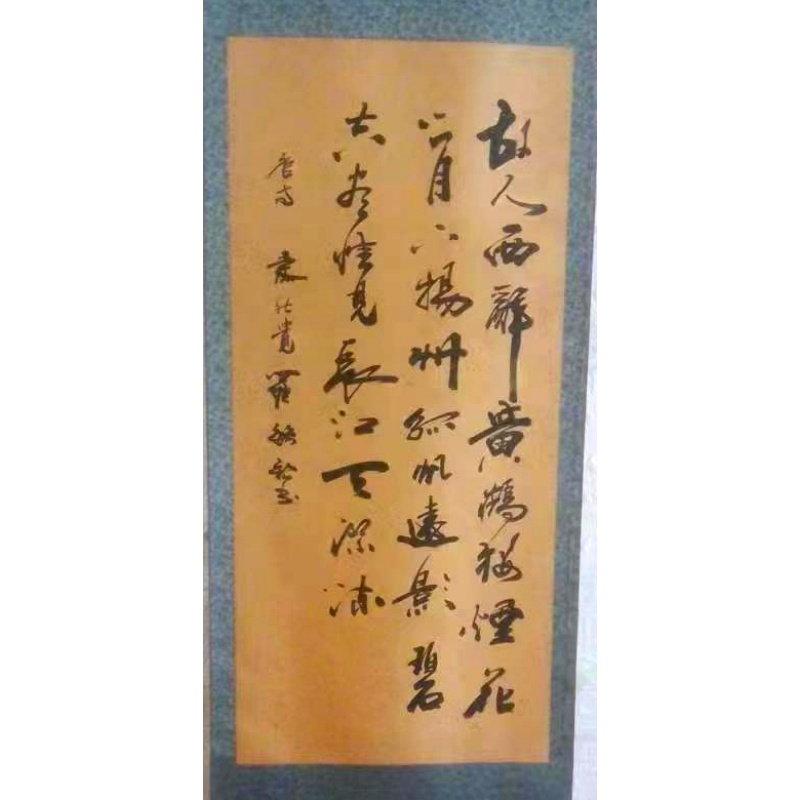 故人西辭黄鶴楼煙花
三月下揚州孤帆遠影碧
空尽惟見長江天際流
唐诗